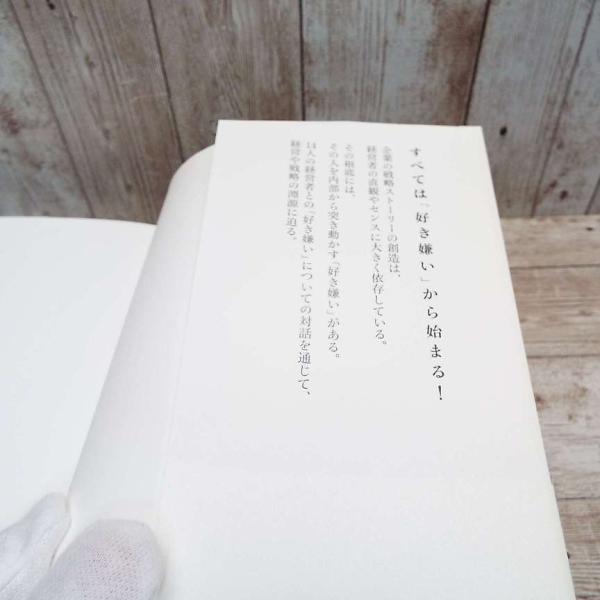 すべては「好き嫌い」から始まる！
企業の戦略ストーリーの創造は、
経営者の直観やセンスに大きく依存している。
その根底には、
その人を内部から突き動かす「好き嫌い」がある。
14人の経営者との「好き嫌い」についての対話を通じて、
経営や戦略の淵源に迫る。